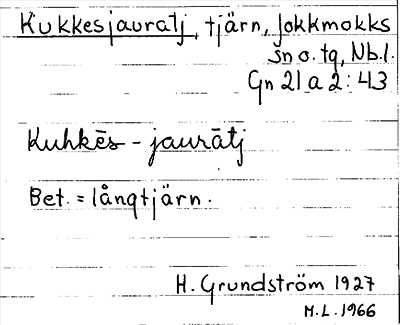 Kukkesjauratj, tjärn, Jokkmokks
sn o. tg, Nb.l.
Gn 21 a 2:43
Kuhkēs - jaurātj
Bet. = långtjärn.
H. Grundström 1927
M.L. 1966